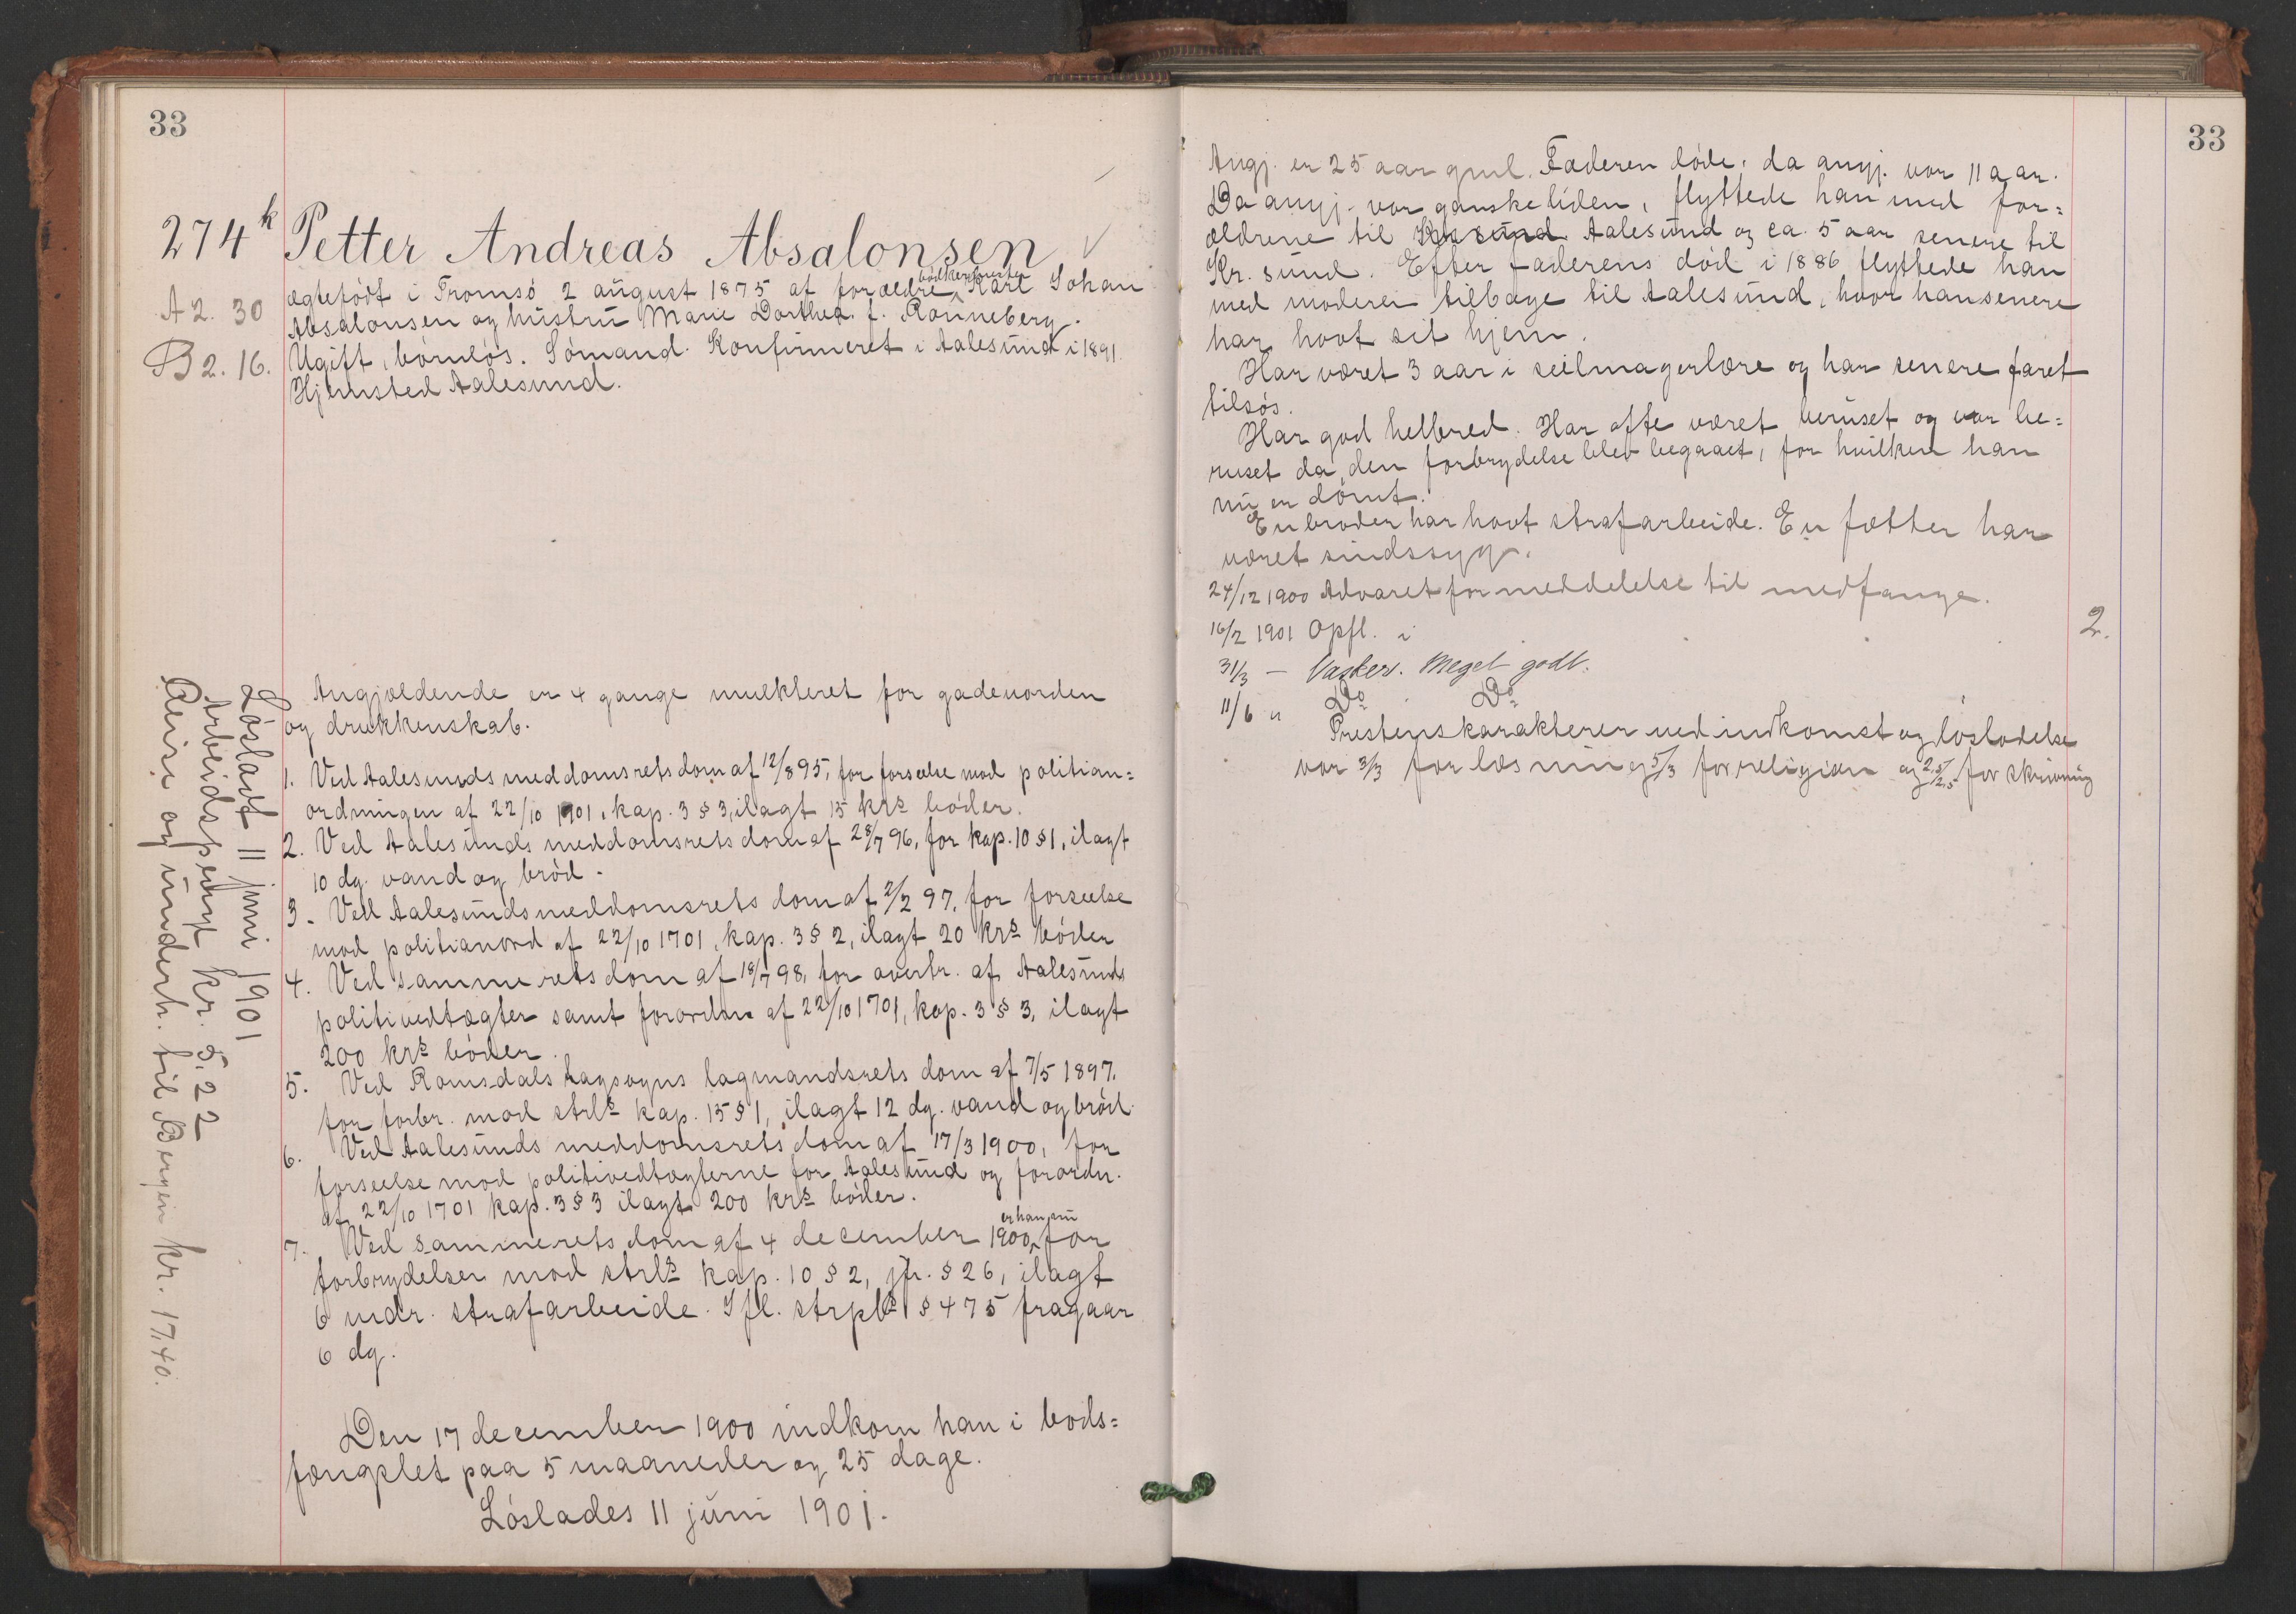 33
274k Petter Andreas Absalonsen
A 2. 30
B 2. 16.
ægtefödt i Tromsö 2 august 1875 af forældre bödkermester Karl Johan
Absalonsen og hustru Marie Dorthea f. Rönneberg.
Ugift, börnlös. Sömand. Konfirmeret i Aalesund i 1891.
Hjemsted Aalesund.
Angjældende er 4 gange mulkteret for gadeuorden
og drukkenskab.
1. Ved Aalesunds meddomsrets dom af 12/8 95, for forseelse mod politian=
ordningen af 22/10 1901, kap. 3 § 3, ilagt 15 krs böder.
2. Ved Aalesunds meddomsrets dom af 28/7 96, for kap. 10 § 1, ilagt
10 dg. vand og bröd.
3. Ved Aalesunds meddomsrets dom af 2/2 97, for forseelse
mod politianord af 22/10 1701, kap. 3 § 2, ilagt 20 krs böder
4. Ved samme rets dom af 18/7 98, for overtr. af Aalesunds
politivedtægter samt forordn af 22/10 1701, kap. 3 § 3, ilagt
200 krs böder.
5. Ved Romsdals lagsogns lagmandsrets dom af 7/5 1897,
for forbr. mod strls kap. 15 § 1, ilagt 12 dg. vand og bröd.
6. Ved Aalesunds meddomsrets dom af 17/3 1900, for
forseelse mod politivedtægterne for Aalesund og forordn.
af 22/10 1701 kap. 3 § 3 ilagt 200 krs böder.
7. Ved sammerets dom af 4 december 1900, er han nu for
forbrydelser mod strls kap. 10 § 2, jfr. § 26, ilagt
6 mdr. strafarbeide. Ifl. strpls § 475 fragaar
6 dg.
Den 17 december 1900 indkom han i bods=
fængslet paa 5 maaneder og 25 dage.
Löslades 11 juni 1901.
Lösladt 11 juni 1901
Arbeidspenge kr. 5.22
Reise og underh. til Bergen kr. 17,40.
33
Angj. er 25 aar gml. Faderen döde, da angj. var 11 aar.
Da angj. var ganske liden, flyttede han med for=
ældrene til Kr.sund Aalesund og ca. 5 aar senere til
Kr. sund. Efter faderens död i 1886 flyttede han
med moderen tilbage til Aalesund, hvor han senere
har havt sit hjem.
Har været 3 aar i seilmagerlære og har senere faret
tilsös.
Har god helbred. Har ofte været beruset og var be=
ruset da den forbrydelse blev begaaet, for hvilken han
nu er dömt.
En broder har havt strafarbeide. En fætter har
været sindssyg.
24/12 1900 Advaret for meddelelse til medfange.
16/2 1901 Opfl. i 2.
31/3 — Vasker. Meget godt.
11/6 " Do Do
Prestens karakterer ved indkomst og löslodelse
var 3/3 for læsning 5/3 for religion og 2,5/2,5 for skrivning